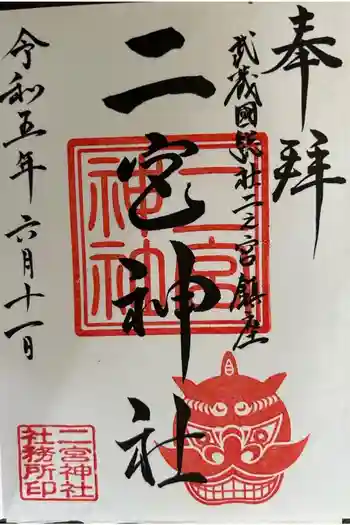 奉拝
武蔵國総社二之宮鎮座
二宮神社
令和五年 六月十一日
二宮
神社
二宮神社
社務所印